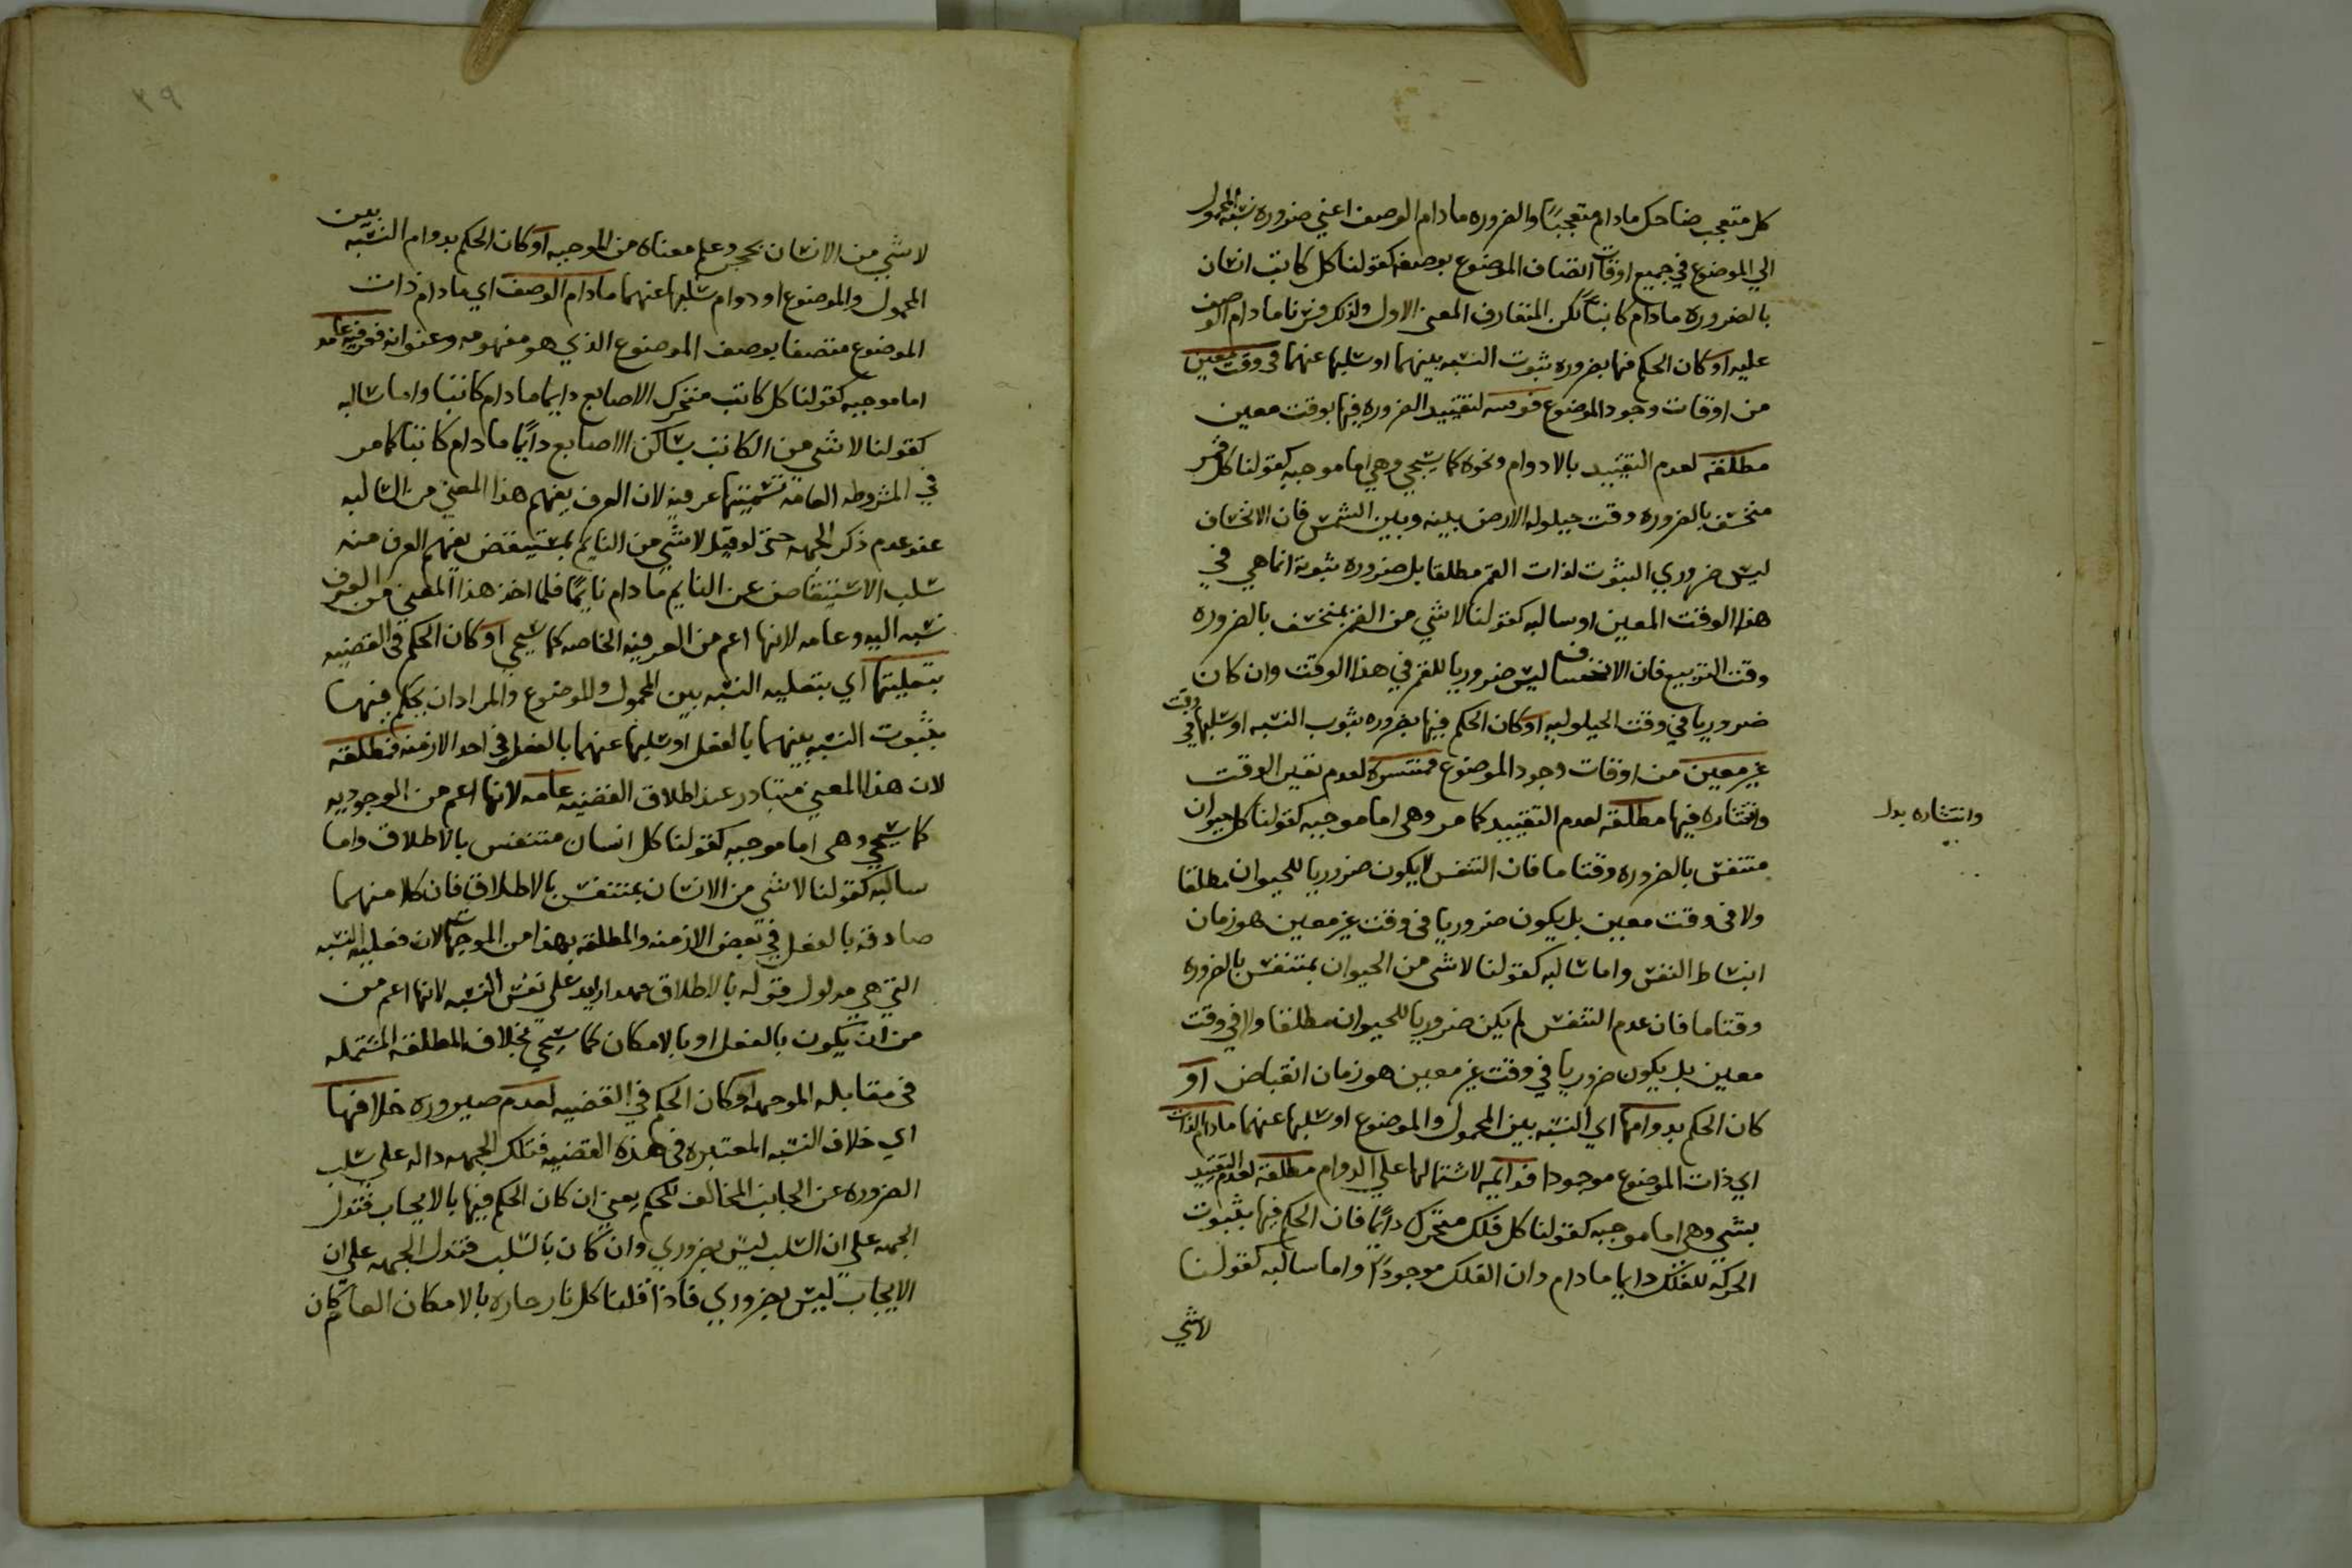 كل متعجب ضاحك مادام متعجبًا والضروره مادام الوصف اعني ضروره نسبة المحمول
الي الموضوع في جميع اوقات اتصاف الموضوع بوصفه كقولنا كل كاتب انسان
بالضروره مادام كاتبًا لكن المتعارف المعنى الاول ولذلك فسرنا مادام الوصف
عليه او كان الحكم فيها بضروره ثبوت النسبه بينهما او سلبها عنهما في وقت معين
من اوقات وجود الموضوع فوقتيه لتقييد الضروره فيها بوقت معين
مطلقه لعدم التقييد بالادوام ونحوه كما سيجي وهي اما موجبه كقولنا كل قمر
منخسف بالضروره وقت حيلوله الارض بينه وبين الشمس فان الانخساف
ليس ضروري الثبوت لذات القمر مطلقا بل ضروره ثبوته انما هي في
هذا الوقت المعين او سالبه كقولنا لاشي من القمر بمنخسف بالضروره
وقت التربيع فان الانخساف ليس ضروريا للقمر في هذا الوقت وان كان
ضروريا في وقت الحيلوليه او كان الحكم فيها بضروره ثبوب النسبه او سلبها في وقت
غير معين من اوقات وجود الموضوع فمنتسره لعدم تعين الوقت
وانتشاره فيها مطلقه لعدم التقييد كما مر وهي اما موجبه كقولنا كل حيوان
وانتشاره بدل
متنفس بالضروره وقتا ما فان التنفس لا يكون ضروريا للحيوان مطلقا
ولا في وقت معين بل يكون ضروريا في وقت غير معين هو زمان
انبساط النفس واما سالبه كقولنا لاشي من الحيوان بمتنفس بالضروره
وقتا ما فان عدم التنفس لم يكن ضروريا للحيوان مطلقا ولا في وقت
معين بل يكون ضروريا في وقت غير معين هو زمان انقباض او
كان الحكم بدوامها اي النسبه بين المحمول والموضوع او سلبها عنهما مادام الذات
اي ذات الموضوع موجودا فدايمه لاشتمالها علي الدوام مطلقه لعدم التقييد
بشي وهي اما موجبه كقولنا كل فلك متحرك دايمًا فان الحكم فيها بثبوت
الحركه للفلك دايما مادام دات الفلك موجودًا واما سالبه كقولنا
لاشي
٣٩
لاشي من الانسان بحجر وعلم معناه من الموجبه او كان الحكم بدوام النسبه بين
المحمول والموضوع او دوام سلبها عنهما مادام الوصف اي مادام ذات
الموضوع متصفا بوصف الموضوع الذي هو مفهومه وعنوانه فعرفيه عامه
اما موجبه كقولنا كل كاتب متحرك الاصابع دايما مادام كاتبا واما سالبه
كقولنا لاشي من الكاتب بساكن الاصابع دايمًا مادام كاتبا كما مر
في المشروطه العامه تسميتها عرفيه لان العرف يفهم هذا المعني من السالبه
عند عدم ذكر الجهه حتى لو قيل لاشي من النايم بمستيقض يفهم العرف منه
سلب الاستيقاض عن النايم مادام نايمًا فلما اخذ هذا المعني من العرف
نسبه اليه وعامه لانها اعم من العرفيه الخاصه كما سيجي او كان الحكم في القضيه
بفعليتها اي بفعليه النسبه بين المحمول والموضوع والمراد ان يحكم فيها
بثبوت النسبه بينهما بالفعل او سلبها عنهما بالفعل في احد الازمنه فمطلقه
لان هذا المعني متبادر عند اطلاق القضيه عامه لانها اعم من الوجوديه
كما سيجي وهي اما موجبه كقولنا كل انسان متنفس بالاطلاق واما
سالبه كقولنا لاشي من الانسان بمتنفس بالاطلاق فان كلا منهما
صادقه بالفعل في بعض الازمنه والمطلقه بهذا من الموجهات لان فعليه النسبه
التي هي مدلول قوله بالاطلاق زايد علي نفس النسبه لانها اعم من
من ان يكون بالفعل او بالامكان كما سيجي بخلاف المطلقه المستعمله
في مقابله الموجهه او كان الحكم في القضيه لعدم صيروره خلافها
اي خلاف النسبه المعتبره في هذه القضيه فتلك الجهه داله علي سلب
الضروره عن الجانب المخالف للحكم يعني ان كان الحكم فيها بالايجاب فتدل
الجهه علي ان السلب ليس بضروري وان كان بالسلب فتدل الجهه علي ان
الايجاب ليس بضروري فاذا قلنا كل نار حاره بالامكان العام كان